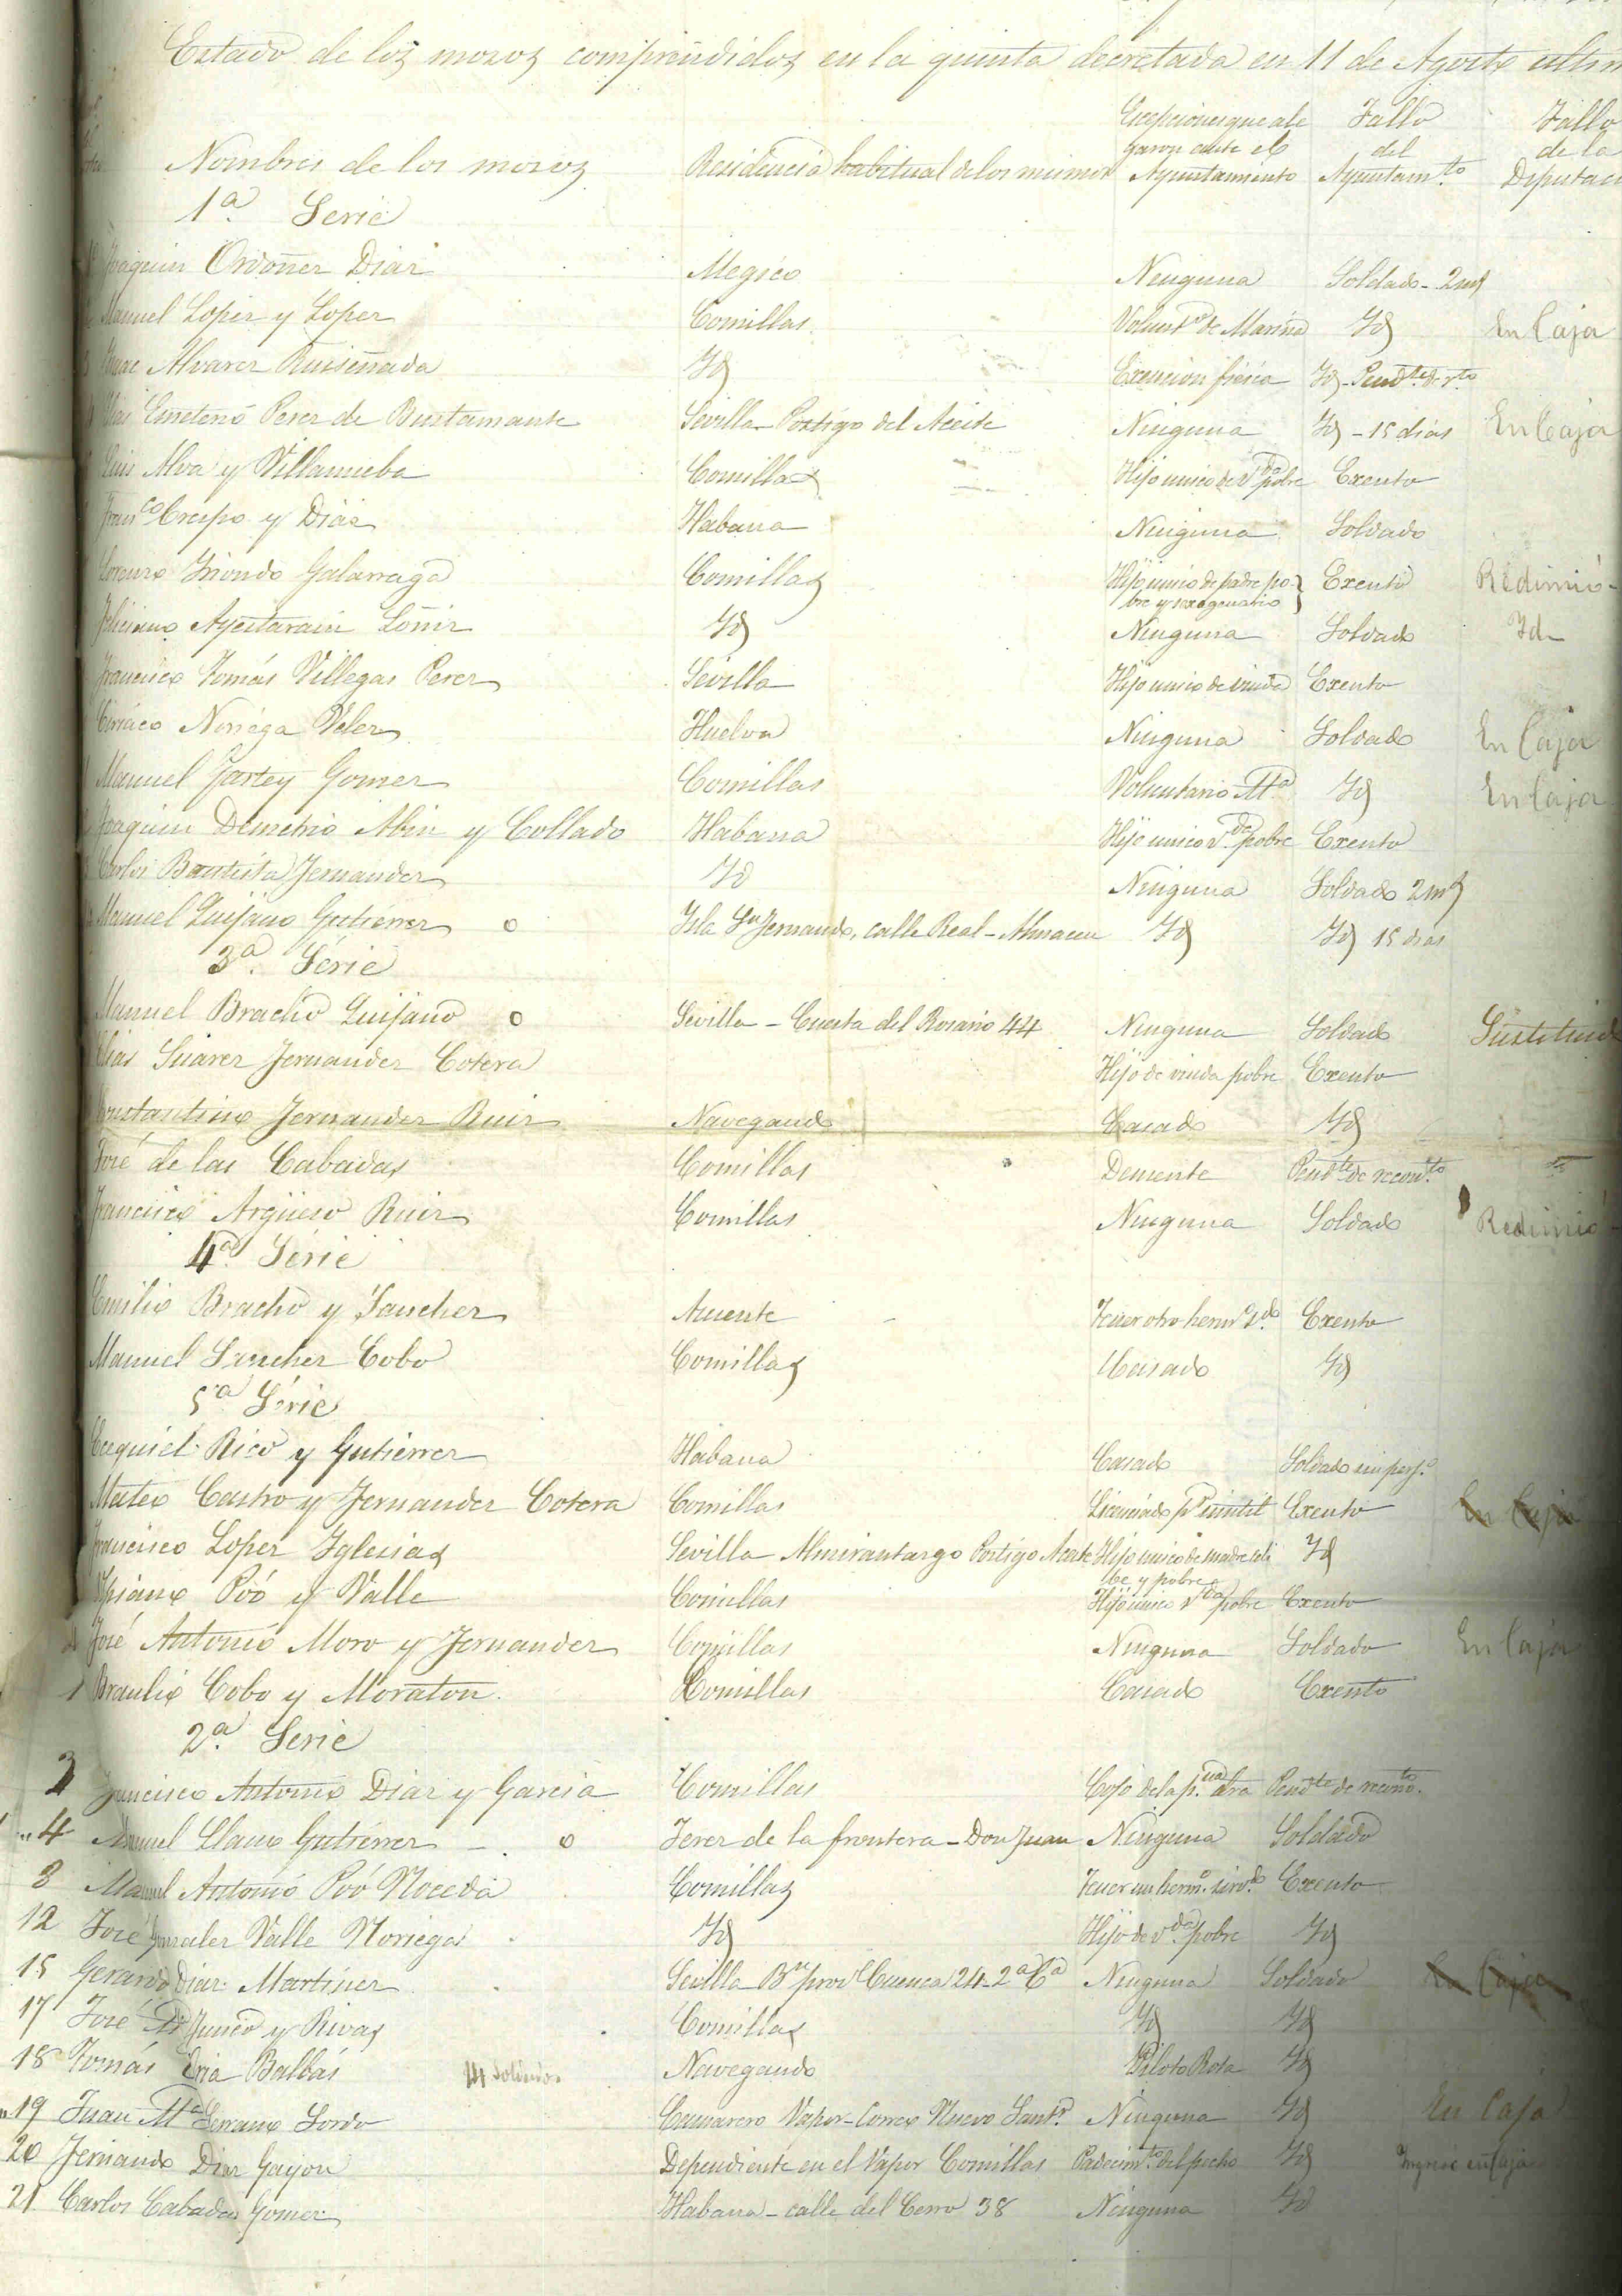 Estado de los mozos comprendidos en la quinta decretada en 11 de Agosto ultim
Nombres de los mozos Residencia habitual de los mismos Excepciones que ale garon ante el Ayuntamiento Fallo del Ayuntam.to Fallo de la Diputaci
1a. Serie
Joaquin Ordoñez Diaz Megico Ninguna Soldado - 2 ms
Manuel Lopez y Lopez Comillas Volunt.o de Marina Id En Caja
Isaac Alvarez Ruiseñada Id Exencion fisica Id - Pend.te de r.to
Emeterio Perez de Bustamante Sevilla Postigo del Aceite Ninguna Id - 15 dias En Caja
Luis Alva y Villanueba Comillas Hijo unico de v.da pobre Exento
Fran.co Crespo y Diaz Habana Ninguna Soldado
Lorenzo Iriondo Galarraga Comillas Hijo unico de padre po- Exento Redimió -
bre y sexagenario
Feliciano Ayestarain Id Ninguna Soldado Id -
Francisco Tomás Villegas Perez Sevilla Hijo unico de viuda Exento
Ciriaco Noriega Velez Huelva Ninguna Soldado En Caja
Manuel Gomez Comillas Voluntario Ma Id En Caja
Joaquin Demetrio Abin y Collado Habana Hijo unico v.da pobre Exento
Carlos Bautista Fernandez Id Ninguna Soldado 2 ms
Manuel Quijano Gutiérrez o Isla Sn Fernando, calle Real - Almacen Id Id 15 dias
3a. Serie
Manuel Bracho Quijano o Sevilla - Cuesta del Rosario 44 Ninguna Soldado Sustituido
Elias Suarez Fernandez Cotera Hijo de viuda pobre Exento
Constantino Fernandez Ruiz Navegando Casado Id
José de las Cabadas Comillas Demente Pend.te de recon.to
Francisco Argüeso Ruiz Comillas Ninguna Soldado Redimió -
4a. Serie
Emilio Bracho y Sanchez Ausente Tener otro herm.o s.do Exento
Manuel Sanchez Cobo Comillas Casado Id
5a Serie
Ezequiel Rico y Gutiérrez Habana Casado Soldado sin perj.o
Mateo Castro y Fernandez Cotera Comillas Licenciado p.r inutil Exento En Caja
Francisco Lopez Iglesias Sevilla Almirantazgo Postigo Aceite Hijo unico de madre celi Id
be y pobre
Cipriano Poó y Valle Comillas Hijo unico v.da pobre Exento
José Antonio Moro y Fernandez Comillas Ninguna Soldado En Caja
Braulio Cobo y Moraton. Comillas Casado Exento
2a. Serie
2 Francisco Antonio Diaz y Garcia Comillas Cojo de la p.na Pend.te de recono.to
4 Manuel Llano Gutiérrez - o Jerez de la frontera - Don Juan Ninguna Soldado
8 Manuel Antonio Poó Noceda Comillas Tener un herm.o sirv.do Exento
12 José Gonzalez Valle Noriega Id Hijo de v.da pobre Id
15 Gerardo Diaz Martinez Sevilla Bon prov.l Cuenca 24 - 2a Ca Ninguna Soldado En Caja
17 José Junco y Rivas Comillas Id Id
18 Tomás Balbás Navegando Piloto Id
19 Juan Ma Serrano Sordo Camarero Vapor-Correo Nuevo Sant.r Ninguna Id En Caja
20 Fernando Diaz Gayon Dependiente en el Vapor Comillas Padecim.to del pecho Id Ingresó en Caja
21 Carlos Cabadas Gomez Habana - calle del Cerro 38 Ninguna Id